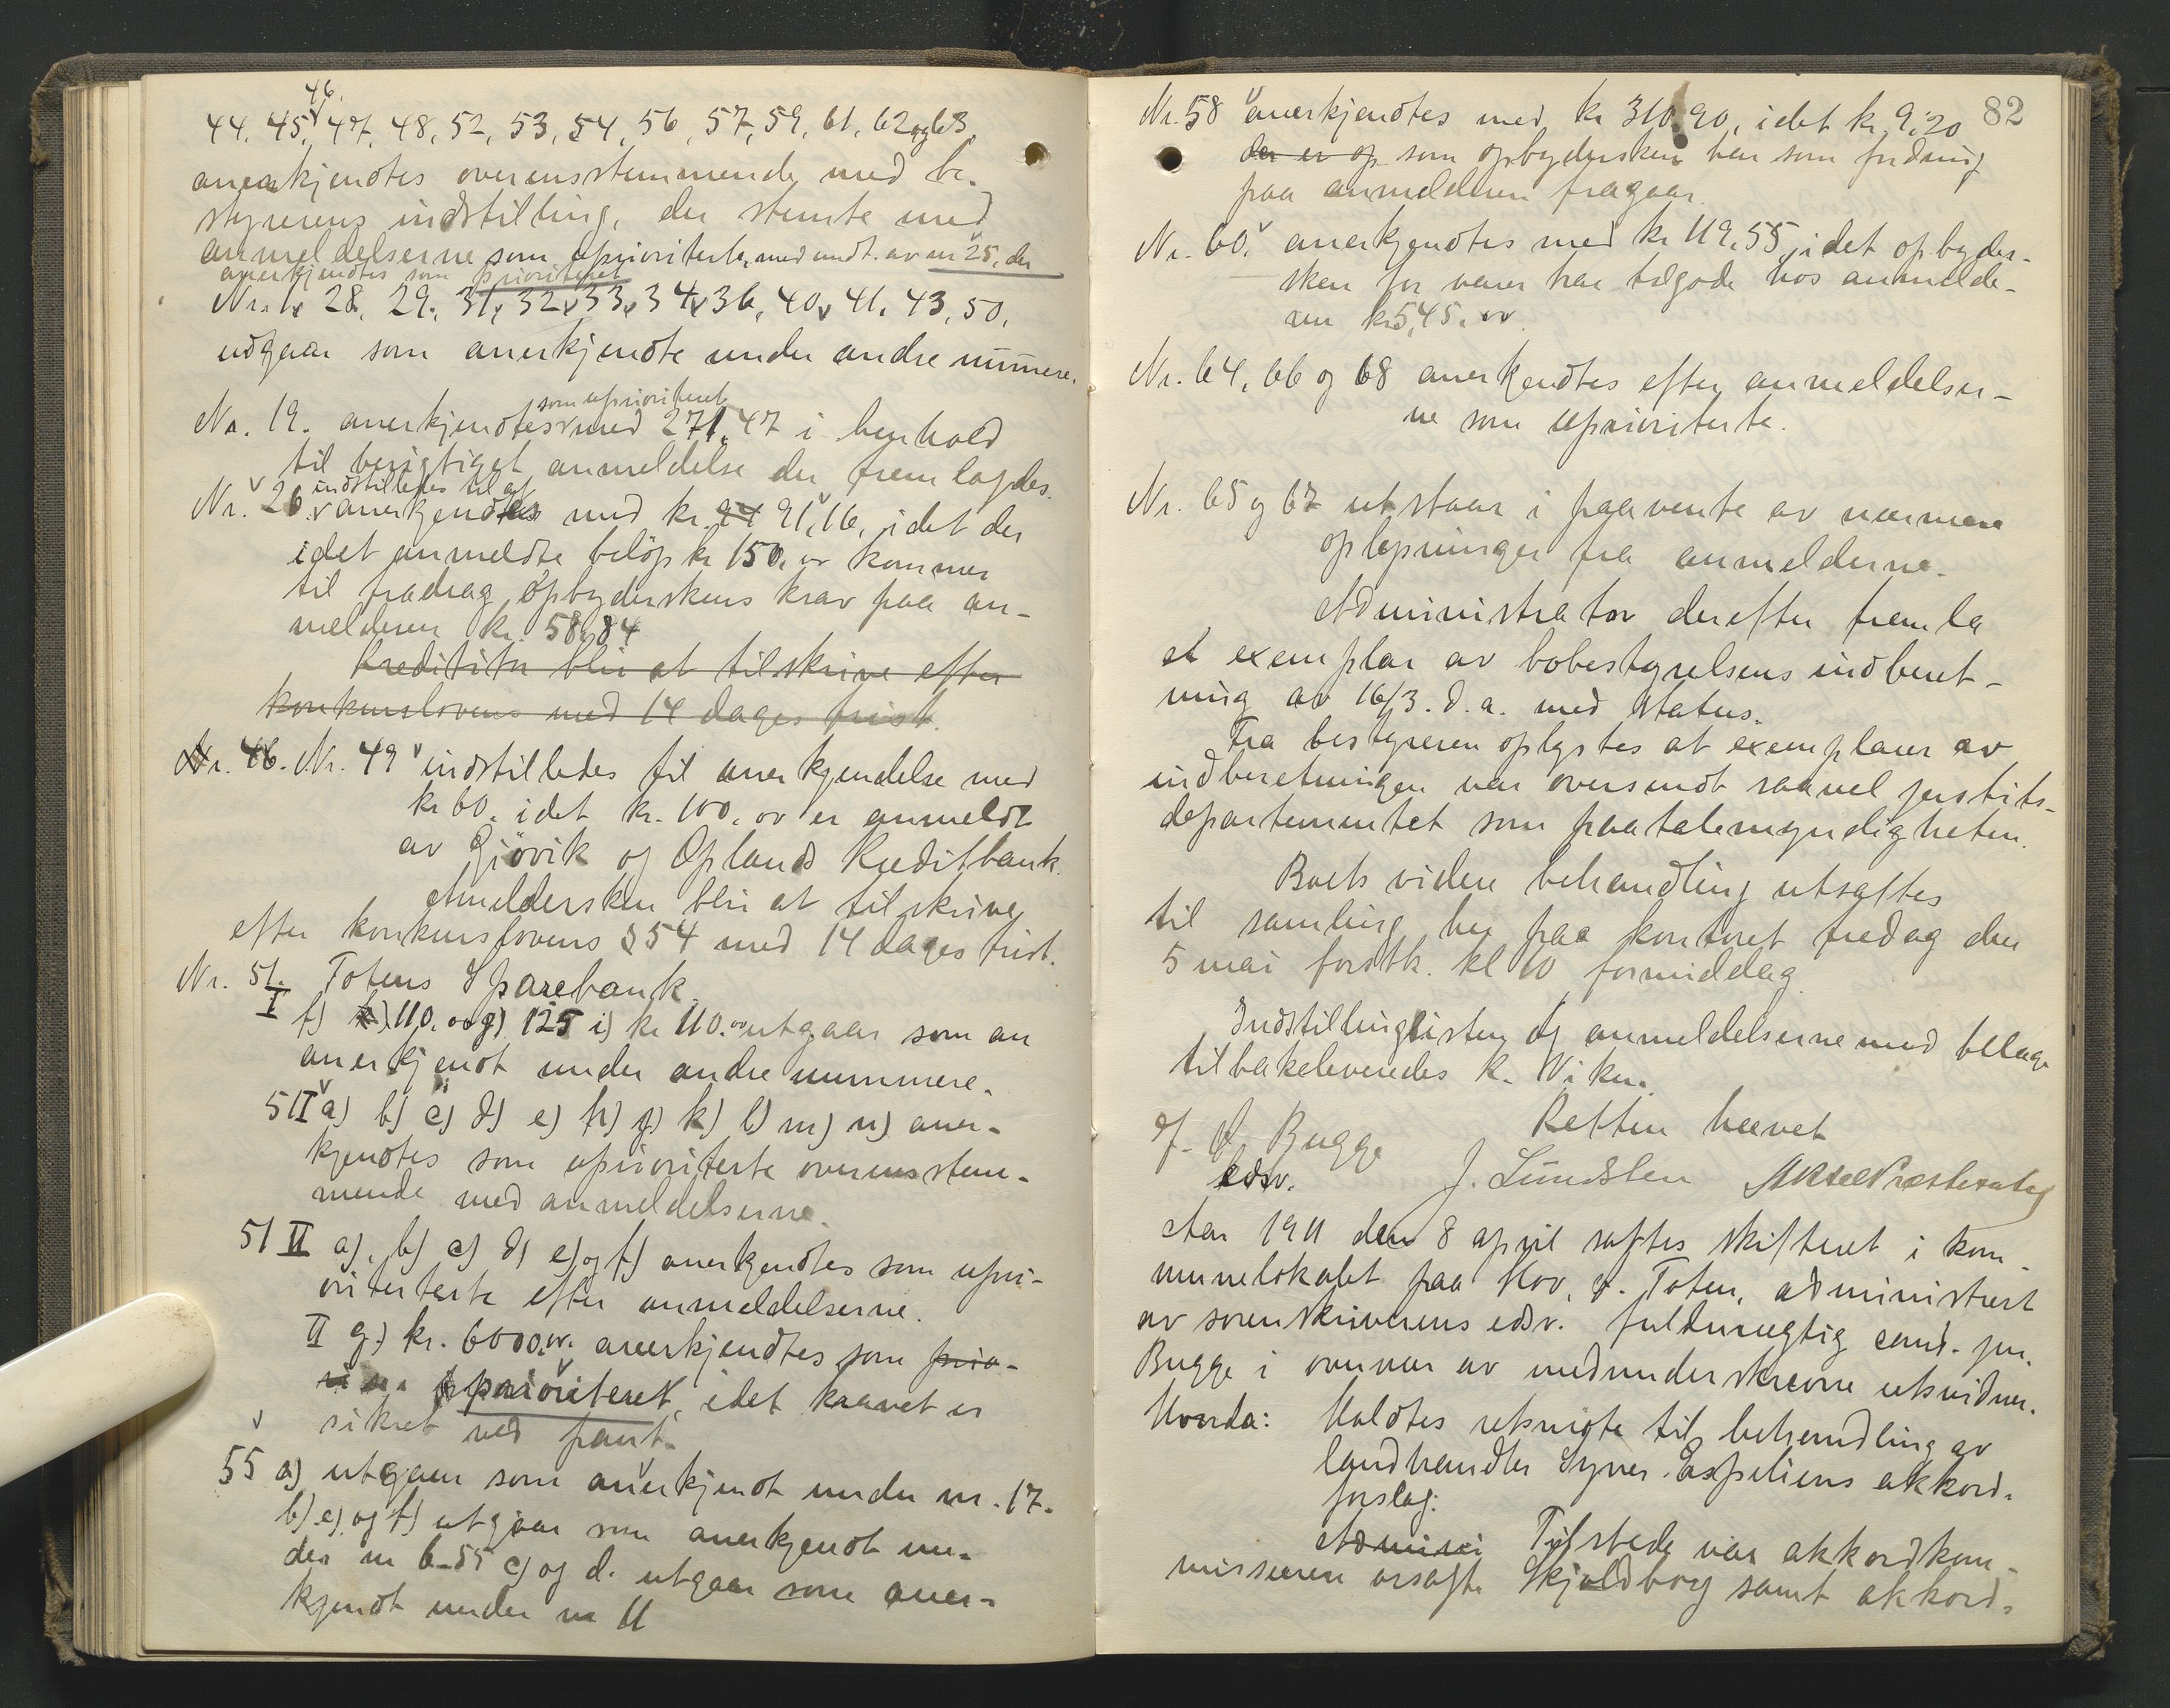 46.
44, 45, 47, 48, 52, 53, 54, 56, 57, 59, 61, 62 og 63.
anerkjendtes overensstemmende med be-
styrerens indstilling, der stemte med
anmeldelserne som uprioriterte, med undt. av nr 25, der
anerkjendtes som prioritert
Nr. 1, 28, 29, 31, 32, 33, 34, 36, 40, 41, 43, 50,
udgaar som anerkjendte under andre numere.
som uprioritert
Nr. 19. anerkjendtes med 271,47 i henhold
til berigtiget anmeldelse der fremlagdes.
indstilledes til at
Nr. 26. anerkjendtes med kr. 91,16, idet der
i det anmeldte beløp kr 150.00 kommer
til fradrag opbyderskens krav paa an-
melderen kr. 58,84
Kreditor blir at tilskrive efter
konkurslovens med 14 dages frist.
Nr. 46. Nr. 49 indstilledes til anerkjendelse med
kr 60. idet kr. 100.00 er anmeldt
av Gjøvik og Oplands Kreditbank.
Anmeldersken blir at tilskrive
efter konkurslovens § 54 med 14 dages frist.
Nr. 51. Totens Sparebank.
I f) 110.00 g) 125 i) kr 110.00 utgaar som an
anerkjendt under andre nummere.
51 I a) b) c) d) e) h) j) k) l) m) n) aner-
kjendtes som uprioriterte overensstem-
mende med anmeldelserne.
51 II a), b) c) d) e) og f) anerkjendtes som upri-
oriterte efter anmeldelserne.
II g) kr. 6000.00. anerkjendtes som prio-
prioriteret, idet kravet er
sikret ved pant.
55 a) utgaar som anerkjendt under nr. 17.
b) e) og f) utgaar som anerkjendt un-
der nr 6 - 55 c) og d. utgaar som aner-
kjendt under nr 11
82
Nr. 58 anerkjendtes med kr 310.90, idet kr 9.20
der er op som opbydersken har som fordring
paa anmelderen fragaar.
Nr. 60. anerkjendtes med kr 119.55, idet opbyder-
sken for varer har tilgode hos anmelde-
ren kr 545.00.
Nr. 64, 66 og 68 anerkjendtes efter anmeldelser-
ne som uprioriterte.
Nr. 65 og 67 utstaar i paavente av nærmere
oplysninger fra anmelderne.
Administrator derefter fremla
et exemplar av bobestyrelsens indberet-
ning av 16/3. d.a. med status.
Fra bestyreren oplystes at exemplarer av
indberetningen var oversendt saavel justits-
departementet som paatalemyndigheten.
Boets videre behandling utsattes
til samling her paa kontoret fredag den
5 mai førstk. kl 10 formiddag.
Indstillinglisten og anmeldelserne med bilage
tilbakeleveredes k. Viken.
Retten hævet
O. Bugge
edsv.
J. Lundsten Aksel Præsterud
Aar 1911 den 8 april sattes skifteret i kom-
munelokalet paa Hov, S. Toten, administrert
av sorenskriverens edsv. fuldmægtig cand. jur.
Bugge i overvær av medunderskrevne retsvidner.
Hvorda: Holdtes retsmøte til behandling av
landhandler Syver Espeliens akkord-
forslag.
Admini Tilstede var akkordkom-
missæren orsagf. Skjoldborg samt akkord-